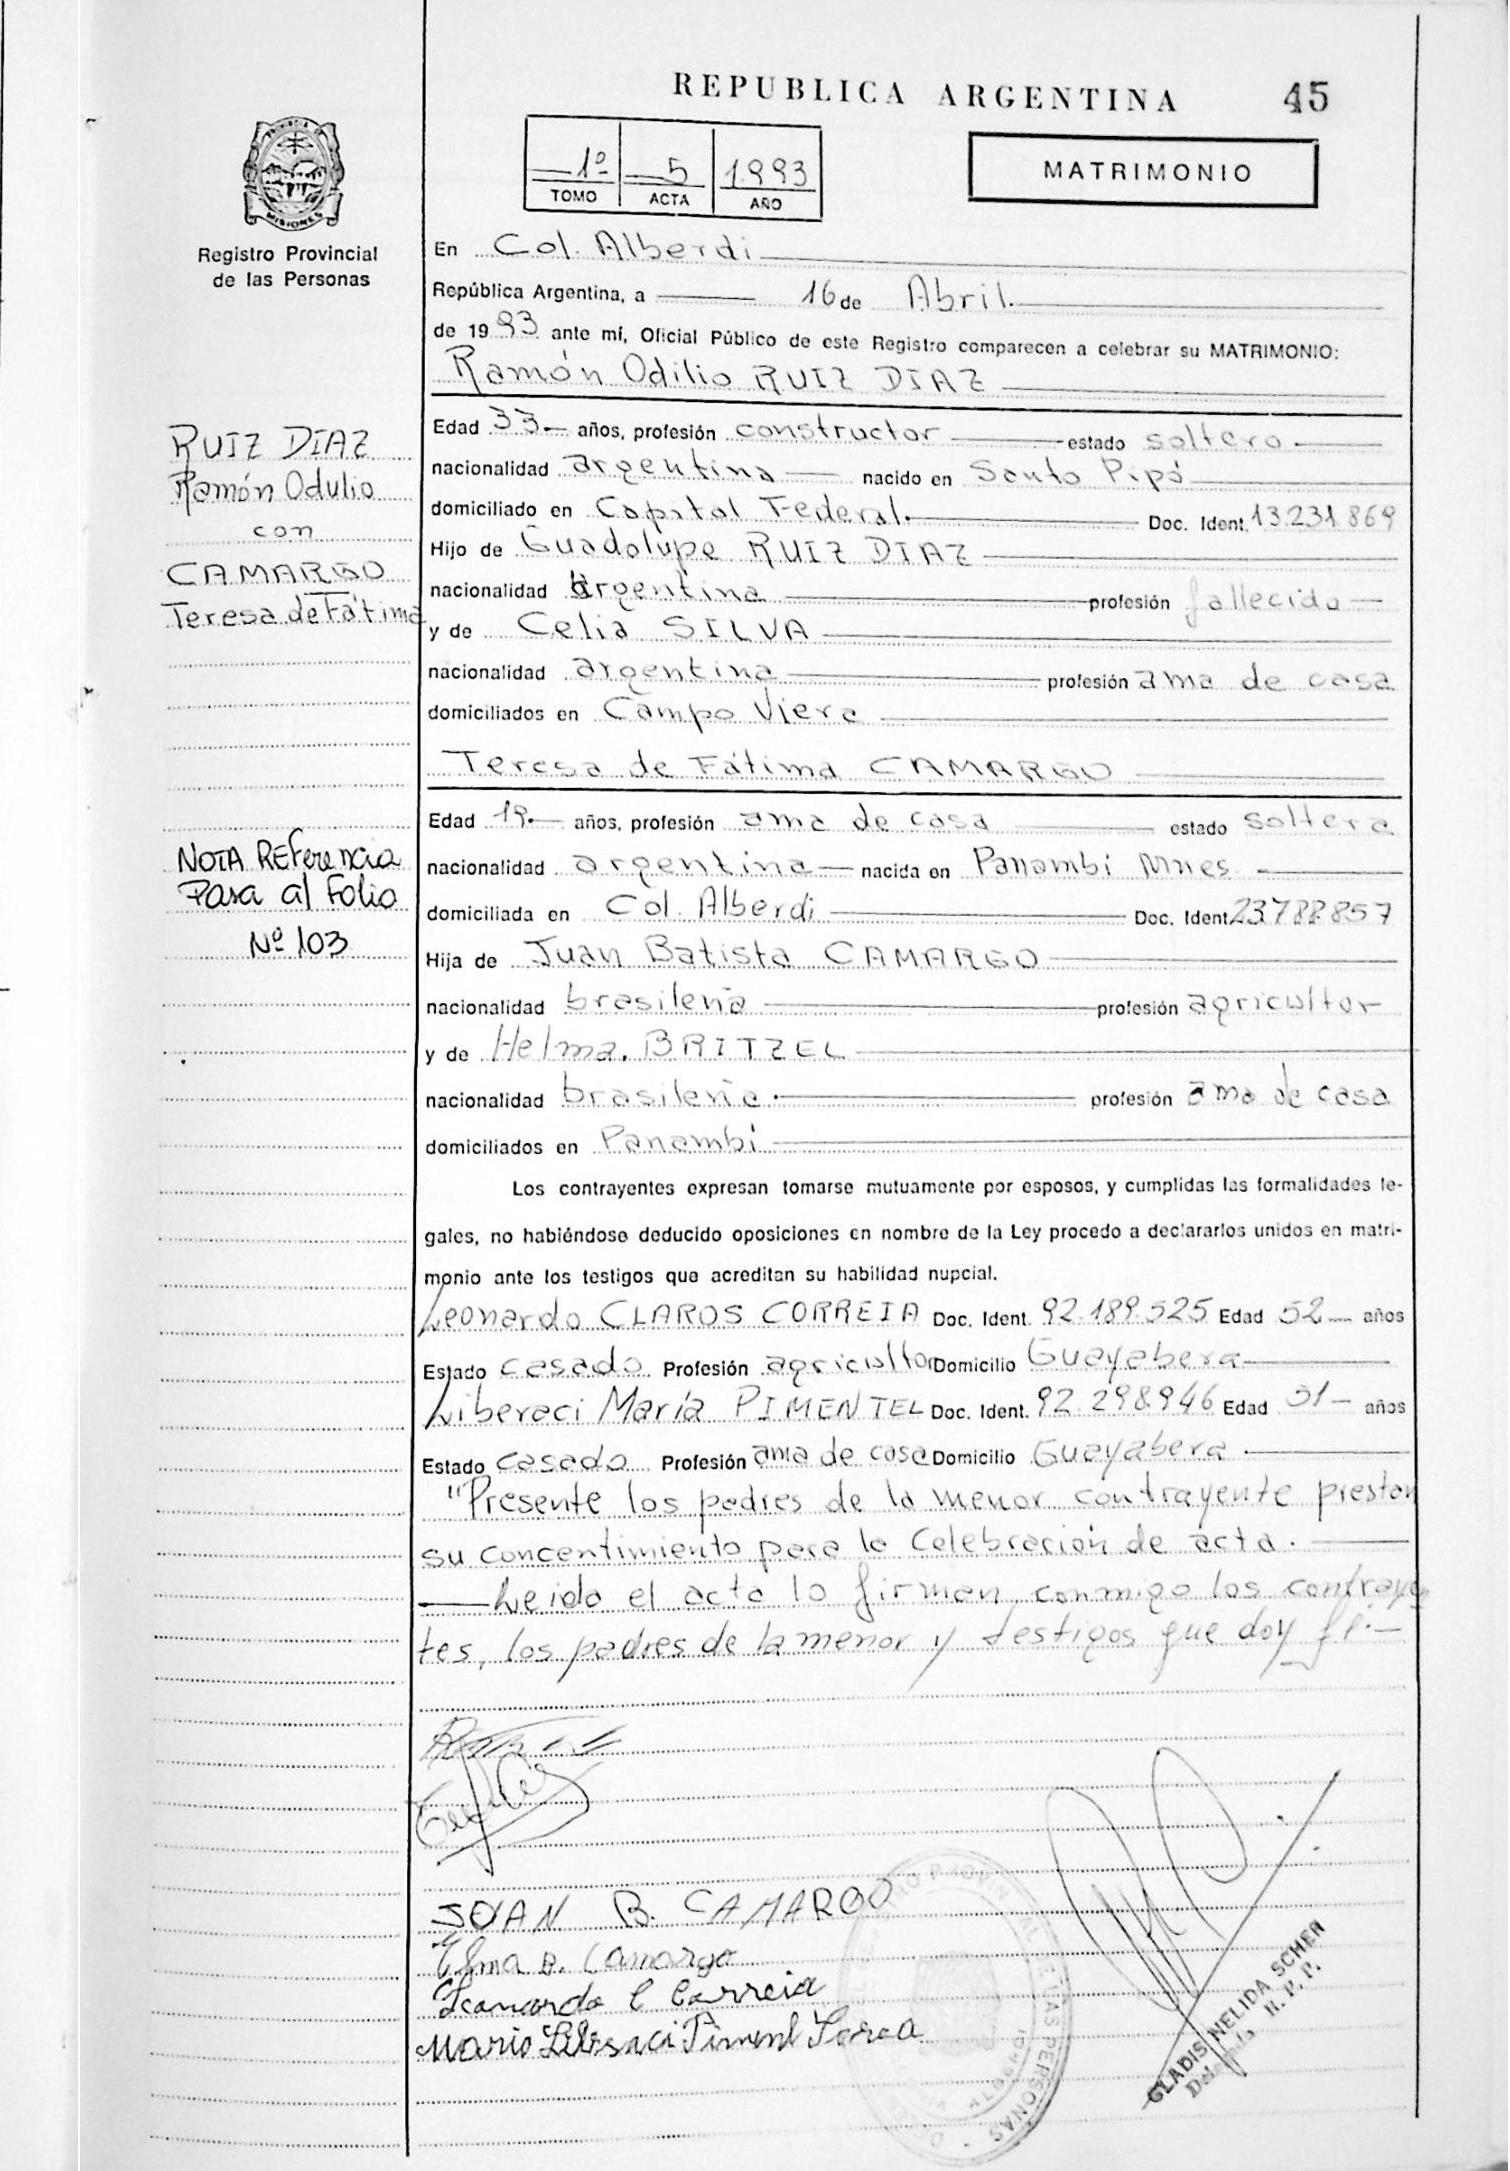 REPUBLICA ARGENTINA 45
1º 5 1.993
TOMO ACTA AÑO
MATRIMONIO
MISIONES
Registro Provincial
de las Personas
En Col. Alberdi
República Argentina, a 16 de Abril.
de 1993 ante mí, Oficial Público de este Registro comparecen a celebrar su MATRIMONIO:
Ramón Odilio RUIZ DIAZ
RUIZ DIAZ
Ramón Odulio
con
CAMARGO
Teresa de Fátima
Edad 33.- años, profesión constructor estado soltero
nacionalidad argentina nacido en Santo Pipó
domiciliado en Capital Federal. Doc. Ident. 13.231.869
Hijo de Guadalupe RUIZ DIAZ
nacionalidad argentina profesión fallecido
y de Celia SILVA
nacionalidad argentina profesión ama de casa
domiciliados en Campo Viera
Teresa de Fátima CAMARGO
Edad 19.- años, profesión ama de casa estado soltera
NOTA REferencia
Pasa al Folio
Nº 103
nacionalidad argentina nacida en Panambí Mnes
domiciliada en Col. Alberdi Doc. Ident. 23.788.857
Hija de Juan Batista CAMARGO
nacionalidad brasileña profesión agricultor
y de Helma. BRITZEL
nacionalidad brasileña profesión ama de casa
domiciliados en Panambí
Los contrayentes expresan tomarse mutuamente por esposos, y cumplidas las formalidades le-
gales, no habiéndose deducido oposiciones en nombre de la Ley procedo a declararlos unidos en matri-
monio ante los testigos que acreditan su habilidad nupcial.
Leonardo CLAROS CORREIA Doc. Ident. 92.189.525 Edad 52 años
Estado casado Profesión agricultor Domicilio Guayabera
Liberaci María PIMENTEL Doc. Ident. 92.298.946 Edad 51 años
Estado casado Profesión ama de casa Domicilio Guayabera
"Presente los padres de la menor contrayente prestan
su concentimiento para la Celebración de acta.
Leida el acta lo firman conmigo los contrayen
tes, los padres de la menor y testigos que doy fé.-
JUAN B. CAMARGO
Elma B. Camargo
Leonardo C Correia
GLADIS NELIDA SCHER
Delegada R. P. P.